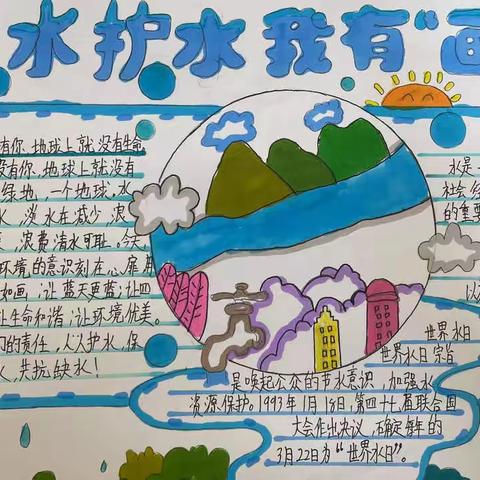 水护水我有“画
有你、地球上就没有生命
没有你、地球上就没有
绿地,一个地球、水
水,淡水在减少,浪
浪费清水可耻。今天
环境的意识刻在心扉用
如画,让蓝天更蓝;让四
让生命和谐;让环境优美。
的责任,人人护水,保
水,共抗缺水!
水是一
社会经
的重要
以
世界水日
世界水日宗旨
是唤起公众的节水意识,加强水
资源保护。1993年1月18日,第四十七届联合国
大会作出决议,确定每年的
3月22日为“世界水日”。